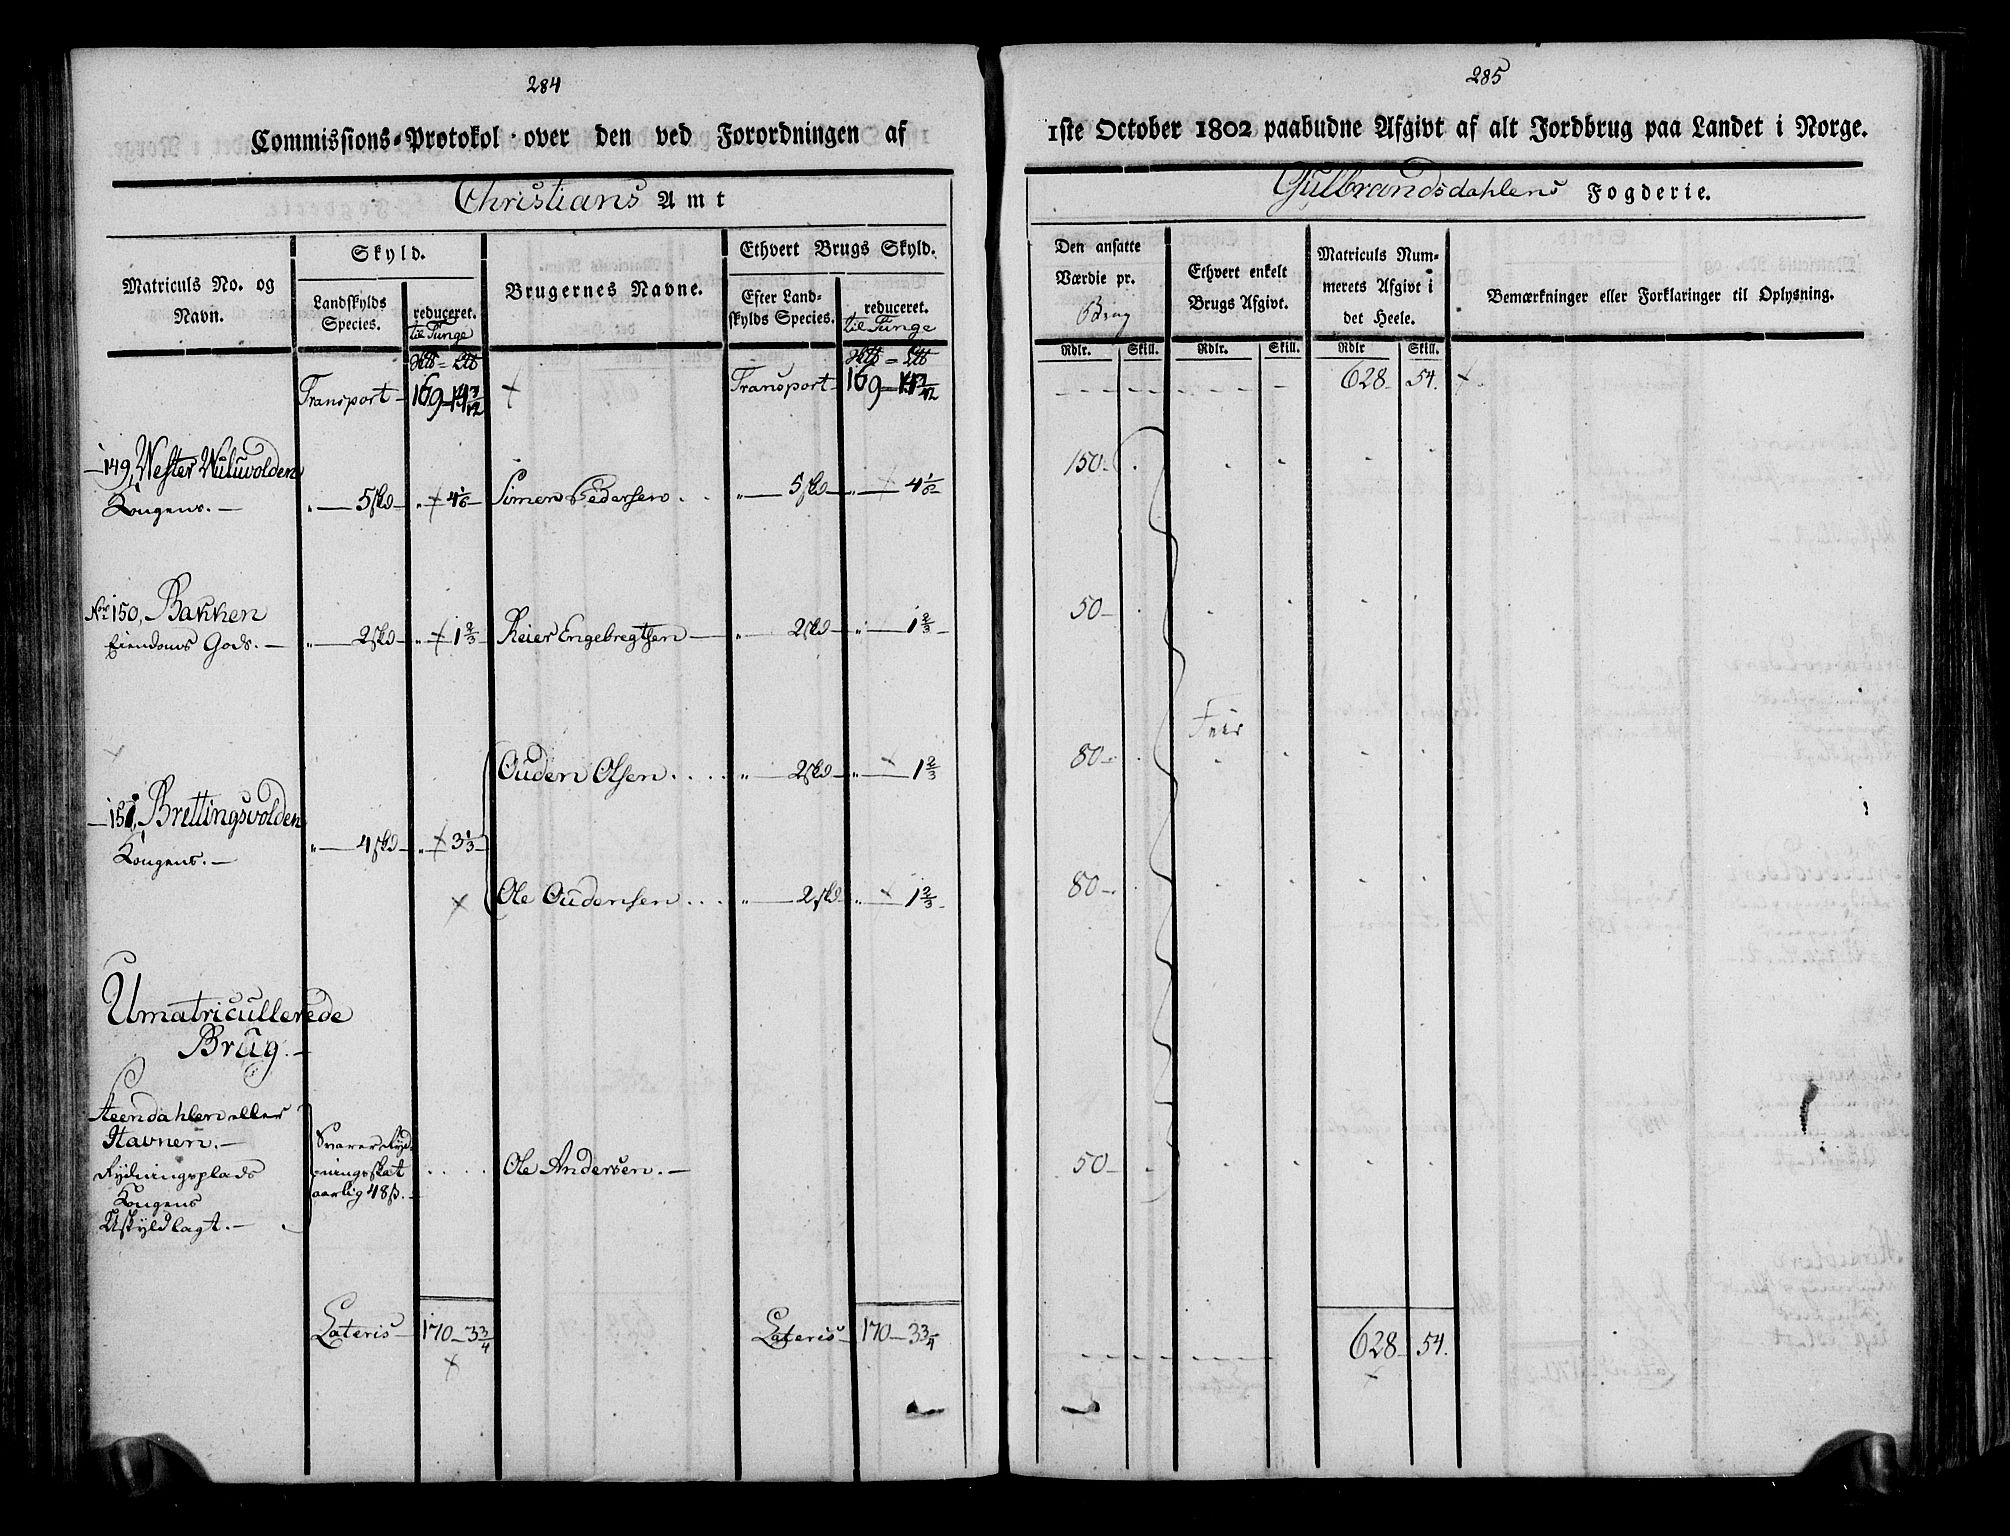 284
Commissions-Protokol over den ved Forordningen af
Christians Amt
Matriculs No. og Navn.
Skyld.
Landskylds Species.
reduceret.
til Tunge
Brugernes Navne.
Ethvert Brugs Skyld.
Efter Land-
skylds Species.
reduceret.
til Tunge
Transport 169 Transport 169
149, Wester
Kongens. — 5 skd 4 1/6 Simen Pedersen 5 skd 4 1/6
No 150, Bakken
Eiendoms Gods. — 2 skd 1 2/3 Reier Engebregtsen 2 skd 1 2/3
Ouden Olsen 2 skd 1 2/3
151, Brettingsvolden
Kongens. — 4 skd 3 1/3
Ole Oudensen 2 skd 1 2/3
Umatricullerede
Brug.
Steendahlen eller
Havnen. —
Rydningsplads
Kongens
Uskyldlagt. —
Svarer Ryd-
ningsskat
aarlig 48 ß.
Ole Andersen. —
Lateris 170 — 3 3/4 Lateris 170 — 3 3/4
285
1ste October 1802 paabudne Afgivt af alt Jordbrug paa Landet i Norge.
Gulbrandsdahlens Fogderie.
Den ansatte
Værdie pr.
Brug
Rdlr. Skill.
Ethvert enkelt
Brugs Afgivt.
Rdlr. Skill.
Matriculs Num-
merets Afgivt i
det Heele.
Rdlr Skill.
Bemærkninger eller Forklaringer til Oplysning.
628 54.
150
50
Frie
80
80
50
628 54.